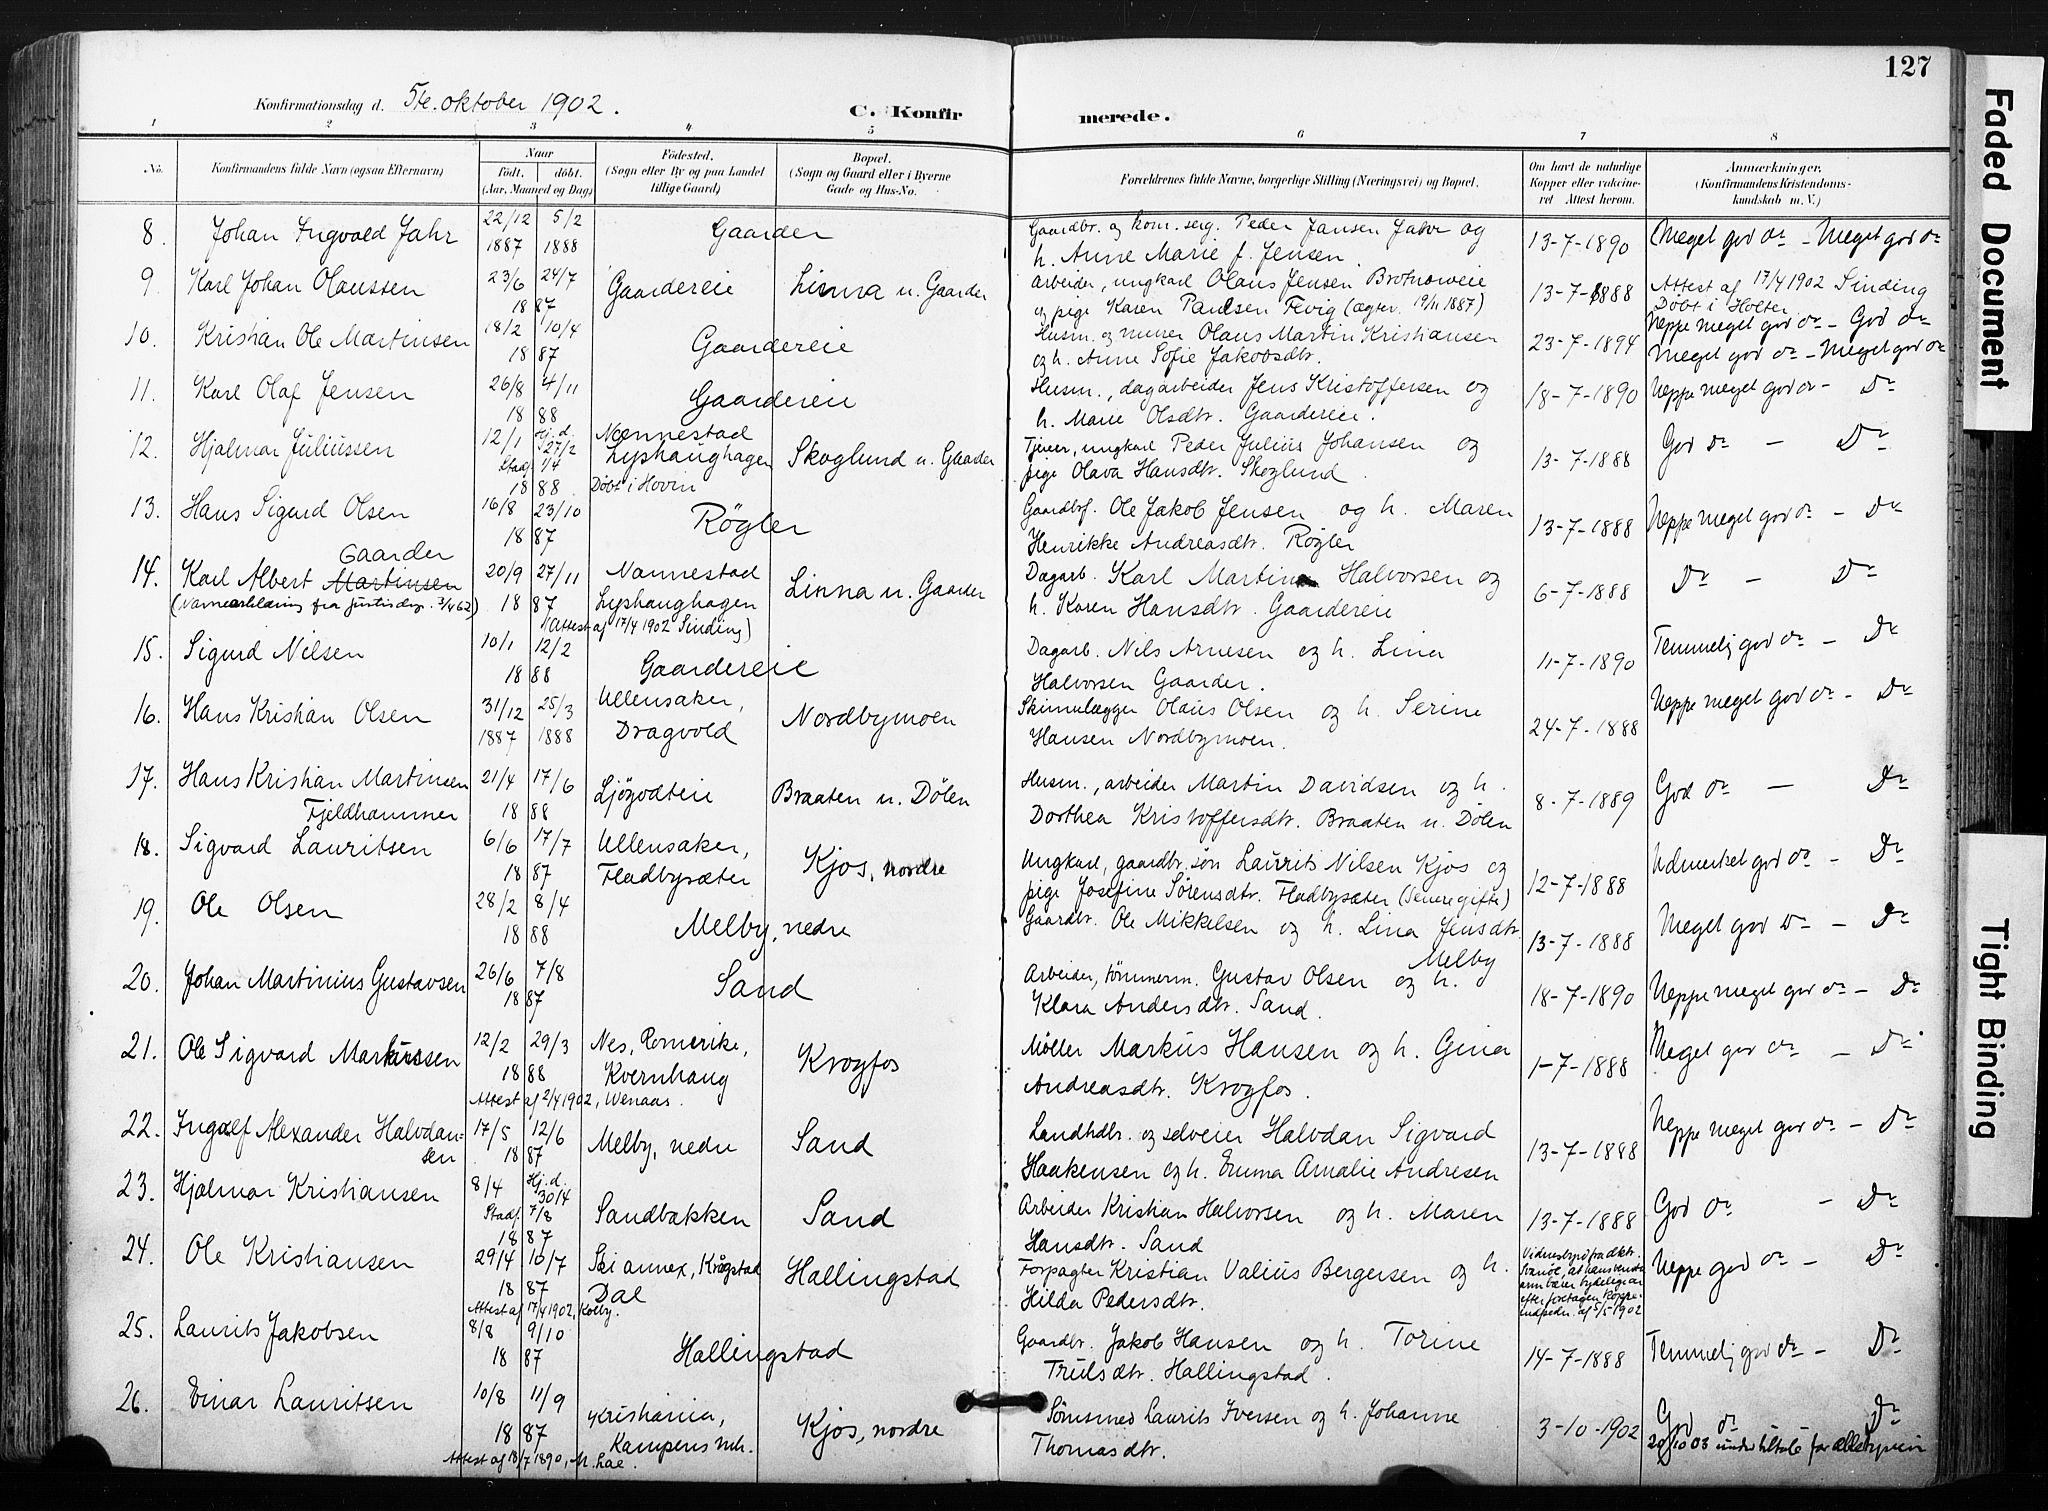 127
Konfirmationsdag d. 5te. oktober 1902.
C. Konfirmerede.
1 2 3 4 5 6 7 8
No.
Konfirmandens fulde Navn (ogsaa Efternavn)
Naar
født. døbt.
(Aar, Maaned og Dag)
Fødested.
(Sogn eller By og paa Landet tillige Gaard)
Bopæl.
(Sogn og Gaard eller i Byerne Gade og Hus-No.
Forældrenes fulde Navne, borgerlige Stilling (Næringsvei) og Bopæl.
Om havt de naturlige Kopper eller vakcineret Attest herom.
Anmærkninger.
(Konfirmandens Kristendomskundskab m. V.)
8. Johan Ingvald Jahr 22/12 1887 5/2 1888 Gaarder
Gaardbr. og kom. serg. Peder Jansen Jahr og
h. Anne Marie f. Jensen. 13-7-1890 Meget god do - Meget god do
9. Karl Johan Olaussen 23/6 24/7 1887 Gaardereie Linna u. Gaarder
Arbeider, ungkarl Olaus Jensen Brotnoweie
og pige Karen Paulsen Tveig (ægtev. 19/11 1887) 13-7-1888 Attest af 17/4 1902 Sinding
Døbt i Holter
Neppe meget god do - God do
10. Kristian Ole Martinsen 18/2 10/4 1887 Gaardereie
Husm. og murer Olaus Martin Kristiansen
og h. Anne Sofie Jakobsdtr. 23-7-1894 Meget god do - Meget god do
11. Karl Olaf Jensen 26/8 4/11 1888 Gaardereie
Husm., dagarbeider Jens Kristoffersen og
h. Marie Olsdtr. Gaardereie. 18-7-1890 Neppe meget god do - Do
12. Hjalmar Juliussen 12/1 Hj. d. 27/2 Stadf. 1/4 1888 Nannestad Lyshaughagen Døbt i Hovin Skoglund u. Gaarder
Tjener, ungkarl Peder Julius Johansen og
pige Olava Hansdtr. Skoglund. 13-7-1888 God do - Do
13. Hans Sigurd Olsen 16/8 23/10 1887 Røgler
Gaardbr. Ole Jakob Jensen og h. Maren
Henrikke Andreasdtr. Røgler 13-7-1888 Neppe meget god do - Do
Gaarder
14. Karl Albert Martinsen 20/9 27/11 1887 Nannestad Lyshaughagen Linna u. Gaarder
(Navneerklæring fra justisdep. 3/4 62) (Attest af 17/4 1902 Sinding)
Dagarb. Karl Martin Halvorsen og
h. Karen Hansdtr. Gaardereie 6-7-1888 Do - Do
15. Sigurd Nilsen 10/1 12/2 1888 Gaardereie
Dagarb. Nils Arnesen og h. Lina
Halvorsen Gaarder. 11-7-1890 Temmelig god do - Do
16. Hans Kristian Olsen 31/12 1887 25/3 1888 Ullensaker, Dragvold Nordbymoen
Skinnelægger Olaus Olsen og h. Serine
Hansen Nordbymoen. 24-7-1888 Neppe meget god do - Do
17. Hans Kristian Martinsen Fjeldhammer 21/4 17/6 1888 Ljøgodteie Braaten u. Dølen
Husm., arbeider Martin Davidsen og h.
Dorthea Kristoffersdtr. Braaten u. Dølen 8-7-1889 God do - Do
18. Sigvard Lauritsen 6/6 17/7 1887 Ullensaker, Fladbysæter Kjos, nordre
Ungkarl, gaardbr. søn Laurits Nilsen Kjos og
pige Josefine Sørensdtr. Fladbysæter (senere gifte) 12-7-1888 Udmerket god do - Do
19. Ole Olsen 28/2 8/4 1888 Melby, nedre
Gaardbr. Ole Mikkelsen og h. Lina Jensdtr.
Melby 13-7-1888 Meget god do - Do
20. Johan Martinius Gustavsen 26/6 7/8 1887 Sand
Arbeider, tømmerm. Gustav Olsen og h.
Klara Andersdtr. Sand. 18-7-1890 Neppe meget god do - Do
21. Ole Sigvard Markussen 12/2 29/3 1888 Nes, Romerike, Kvernhaug Krogfos
Attest af 2/4 1902, Wenaas.
Møller Markus Hansen og h. Gina
Andreasdtr. Krogfos. 1-7-1888 Meget god do - Do
22. Ingolf Alexander Halvdansen 17/5 12/6 1887 Melby, nedre Sand
Landhdlr. og selveier Halvdan Sigvard
Haakensen og h. Emma Amalie Andresen 13-7-1888 Neppe meget god do - Do
23. Hjalmar Kristiansen 8/4 Hj. d. 30/4 Stadf. 7/8 1887 Sandbakken Sand
Arbeider Kristian Halvorsen og h. Maren
Hansdtr. Sand 13-7-1888 God do - Do
24. Ole Kristiansen 29/4 10/7 1887 Ski annex, Kraagstad Dal Hallingstad
Attest af 17/4 1902, Kolby.
Forpagter Kristian Valius Bergersen og h.
Hilda Pedersdtr. Neppe god do - Do
25. Laurits Jakobsen 8/8 9/10 1887 Hallingstad
Gaardbr. Jakob Hansen og h. Torine
Trulsdtr. Hallingstad. 14-7-1888 Temmelig god do - Do
26. Einar Lauritsen 10/8 11/9 1887 Kristiania, Kampens mh. Kjos, nordre
Attest af 18/7 1890, M. Lae.
Sømsmed Laurits Iversen og h. Johanne
Thomasdtr. 3-10-1902 God do Do
20/10 03 under tiltale for
Faded Document
Tight Binding